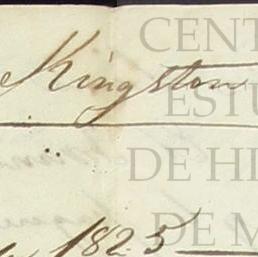 Kingston
CENT
ESTU
DE HI
DE M
1825